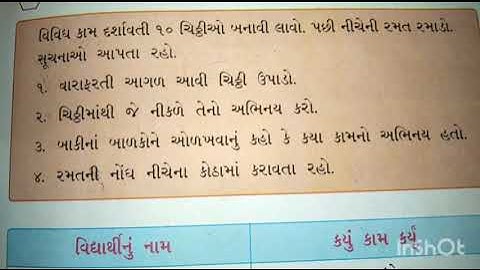 વિવિધ કામ દર્શાવતી ૧૦ ચિઠ્ઠીઓ બનાવી લાવો. પછી નીચેની રમત રમાડો.
સૂચનાઓ આપતા રહો.
૧. વારાફરતી આગળ આવી ચિઠ્ઠી ઉપાડો.
૨. ચિઠ્ઠીમાંથી જે નીકળે તેનો અભિનય કરો.
૩. બાકીનાં બાળકોને ઓળખવાનું કહો કે કયા કામનો અભિનય હતો.
૪. રમતની નોંધ નીચેના કોઠામાં કરાવતા રહો.
વિદ્યાર્થીનું નામ
કયું કામ કર્યું
InShOt